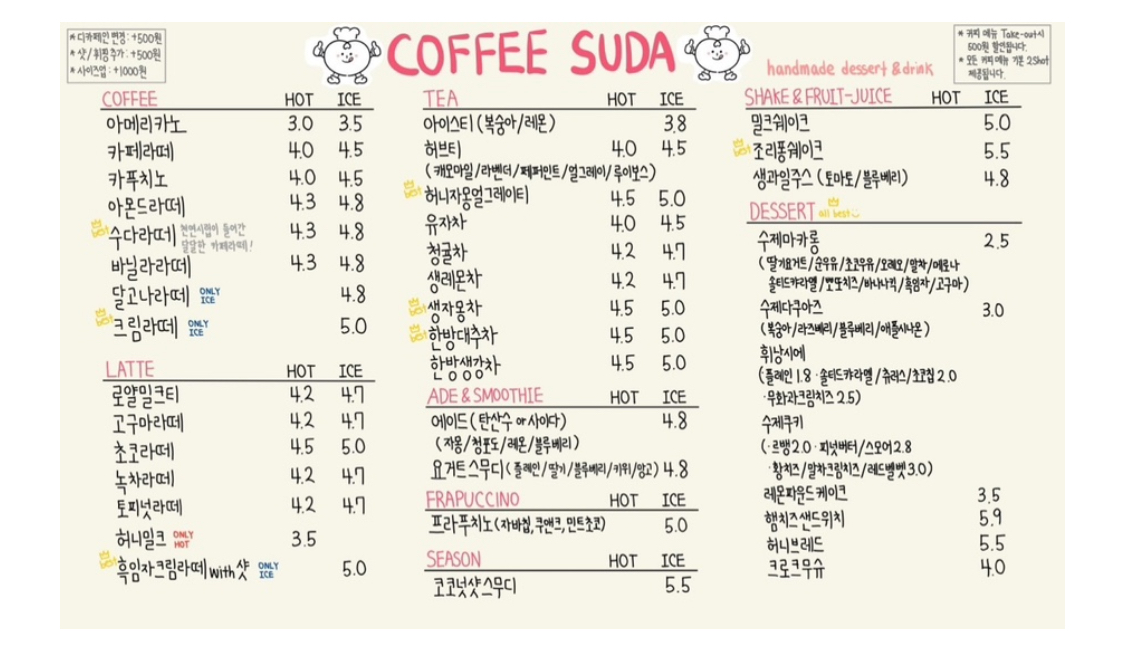 * 디카페인 변경 : +500원
* 샷/휘핑추가 : +500원
* 사이즈업 : +1000원
COFFEE SUDA
handmade dessert & drink
* 커피 메뉴 Take-out시
500원 할인됩니다.
* 모든 커피메뉴 기본 2Shot
제공됩니다.
COFFEE HOT ICE
아메리카노 3.0 3.5
카페라떼 4.0 4.5
카푸치노 4.0 4.5
아몬드라떼 4.3 4.8
수다라떼 천연시럽이 들어간 4.3 4.8
달달한 카페라떼!
바닐라라떼 4.3 4.8
달고나라떼 ONLY ICE 4.8
크림라떼 ONLY ICE 5.0
LATTE HOT ICE
로얄밀크티 4.2 4.7
고구마라떼 4.2 4.7
초코라떼 4.5 5.0
녹차라떼 4.2 4.7
토피넛라떼 4.2 4.7
허니밀크 ONLY HOT 3.5
흑임자크림라떼 with 샷 ONLY ICE 5.0
TEA HOT ICE
아이스티 (복숭아/레몬) 3.8
허브티 4.0 4.5
(캐모마일/라벤더/페퍼민트/얼그레이/루이보스)
허니자몽얼그레이티 4.5 5.0
유자차 4.0 4.5
청귤차 4.2 4.7
생레몬차 4.2 4.7
생자몽차 4.5 5.0
한방대추차 4.5 5.0
한방생강차 4.5 5.0
ADE & SMOOTHIE HOT ICE
에이드 (탄산수 or 사이다) 4.8
(자몽/청포도/레몬/블루베리)
요거트스무디 (플레인/딸기/블루베리/키위/망고) 4.8
FRAPUCCINO HOT ICE
프라푸치노 (자바칩, 쿠앤크, 민트초코) 5.0
SEASON HOT ICE
코코넛샷스무디 5.5
SHAKE & FRUIT-JUICE HOT ICE
밀크쉐이크 5.0
조리퐁쉐이크 5.5
생과일주스 (토마토/블루베리) 4.8
DESSERT all best
수제마카롱 2.5
(딸기요거트/순우유/초코우유/오레오/말차/메로나
솔티드캬라멜/뽀또치즈/바나나킥/흑임자/고구마)
수제다쿠아즈 3.0
(복숭아/라즈베리/블루베리/애플시나몬)
휘낭시에
(플레인 1.8 · 솔티드캬라멜/츄러스/초코칩 2.0
· 무화과크림치즈 2.5)
수제쿠키
(· 르뱅 2.0 · 피넛버터/스모어 2.8
· 황치즈/말차크림치즈/레드벨벳 3.0)
레몬파운드케이크 3.5
햄치즈샌드위치 5.9
허니브레드 5.5
크로크무슈 4.0